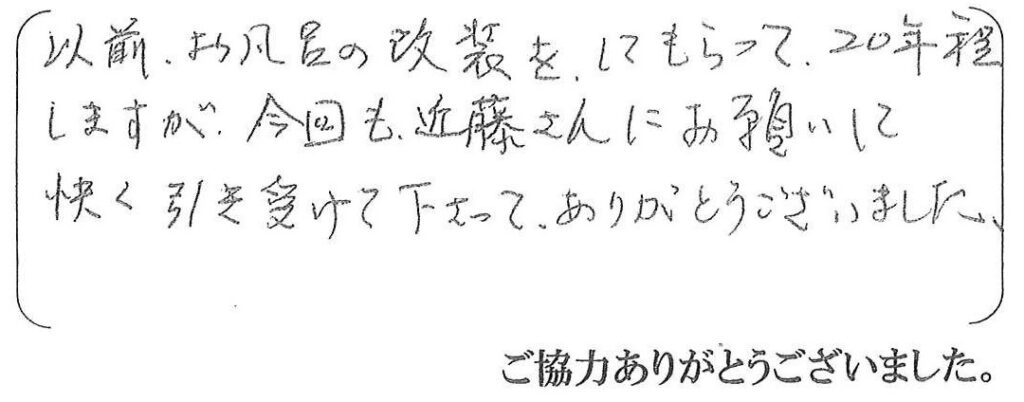 以前、お風呂の改装を、してもらって、20年程
しますが、今回も、近藤さんにお願いして
快く引き受けて下さって、ありがとうございました、
ご協力ありがとうございました。